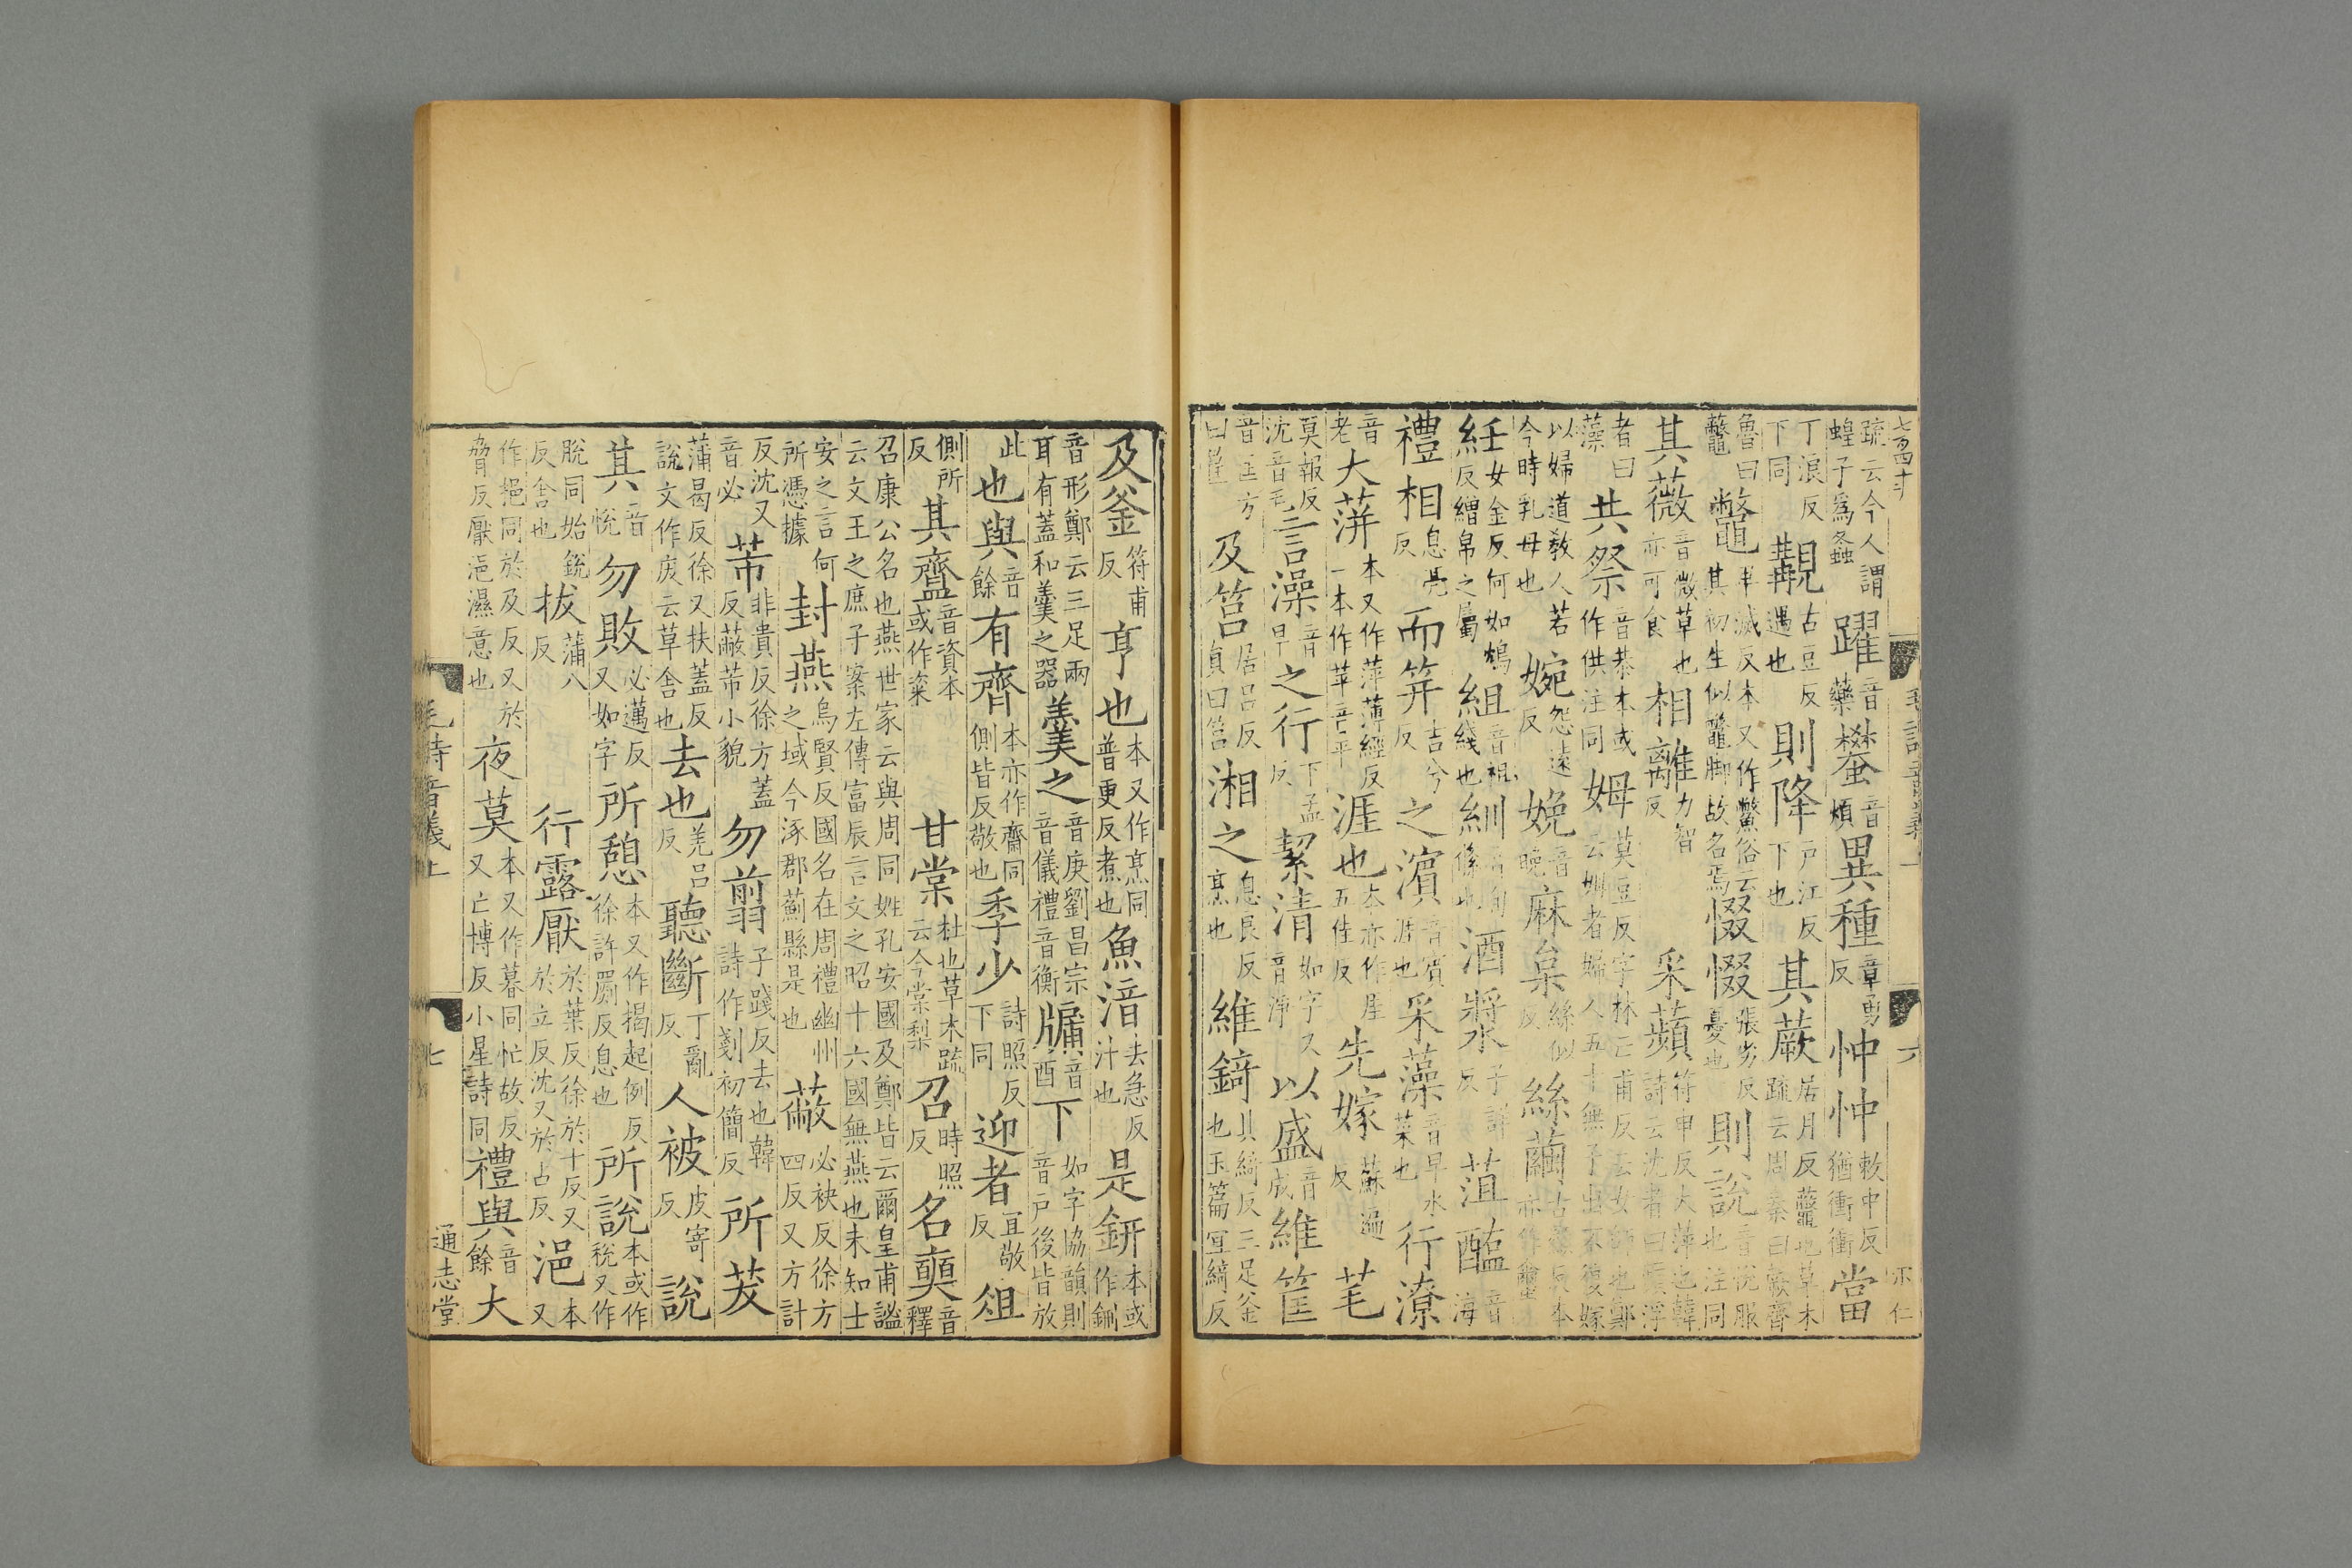 疏云今人謂蝗子爲螽 躍音藥 蠜音煩 異種章勇反 忡忡敕中反猶衝衝 當
丁浪反下同 覯古豆反遇也 則降戸江反下也 其蕨居月反虌也草木疏云周秦曰蕨齊
魯曰虌 鼈卑滅反本又作鱉俗云其初生似鼈脚故名焉 惙惙張劣反憂也 則說音悅服也注同
其薇音微草也亦可食 相離力智反 采蘋符申反大萍也韓詩云沈者曰蘋浮
者曰藻 共祭音恭本或作供注同 姆莫豆反字林亡甫反云女師也鄭云姆者婦人五十無子出不復嫁
以婦道教人若今時乳母也 婉怨遠反 娩音晚 麻枲絲似反 絲繭古顯反本亦作蠒
紝女金反何如鴆反繒帛之屬 組音祖綫也 紃音旬絛也 酒漿子詳反 菹 醢音海
禮相息亮反 而笄吉兮反 之濱音賓涯也 采藻音早水菜也 行潦
音老 大蓱本又作萍薄經反一本作苹音平 涯也本亦作崖五佳反 先嫁蘇遍反 芼
莫報反沈音毛 言澡音早 之行下孟反 絜清如字又音淨 以盛音成 維筐
音匡方曰筐 及筥居呂反圓曰筥 湘之息良反烹也 維錡其綺反三足釜也玉篇宜綺反
毛詩音義上 六
及釜符甫反 亨也本又作烹同普更反煮也 魚湆去急反汁也 是鈃本或作鉶
音形鄭云三足兩耳有蓋和羹之器 羹之音庚劉昌宗音儀禮音衡 牖音酉 下如字協韻則音戸後皆放
此 也與音餘 有齊本亦作齋同側皆反敬也 季少詩照反下同 迎者宜敬反 俎
側所反 其齍音資本或作粢
甘棠杜也草木疏云今棠梨 召時照反 名奭音釋
召康公名也燕世家云與周同姓孔安國及鄭皆云爾皇甫謐云文王之庶子案左傳富辰言文之昭十六國無燕也未知士
安之言何所憑據 封燕烏賢反國名在周禮幽州之域今涿郡薊縣是也 蔽必袂反徐方四反又方計
反沈又音必 芾非貴反徐方蓋反蔽芾小貌 勿翦子踐反去也韓詩作剗初簡反 所茇
蒲曷反徐又扶蓋反說文作废云草舍也 去也羌呂反 聽斷丁亂反 人被皮寄反 說
其音悅 勿敗必邁反又如字 所憩本又作揭起例反徐許罽反息也 所說本或作稅又作
脫同始銳反舍也 拔蒲八反
行露 厭於葉反徐於十反又於立反沈又於占反 浥本又
作挹同於及反又於脅反厭浥濕意也 夜莫本又作暮同忙故反又亡博反小星詩同 禮與音餘 大
毛詩音義上 七 通志堂